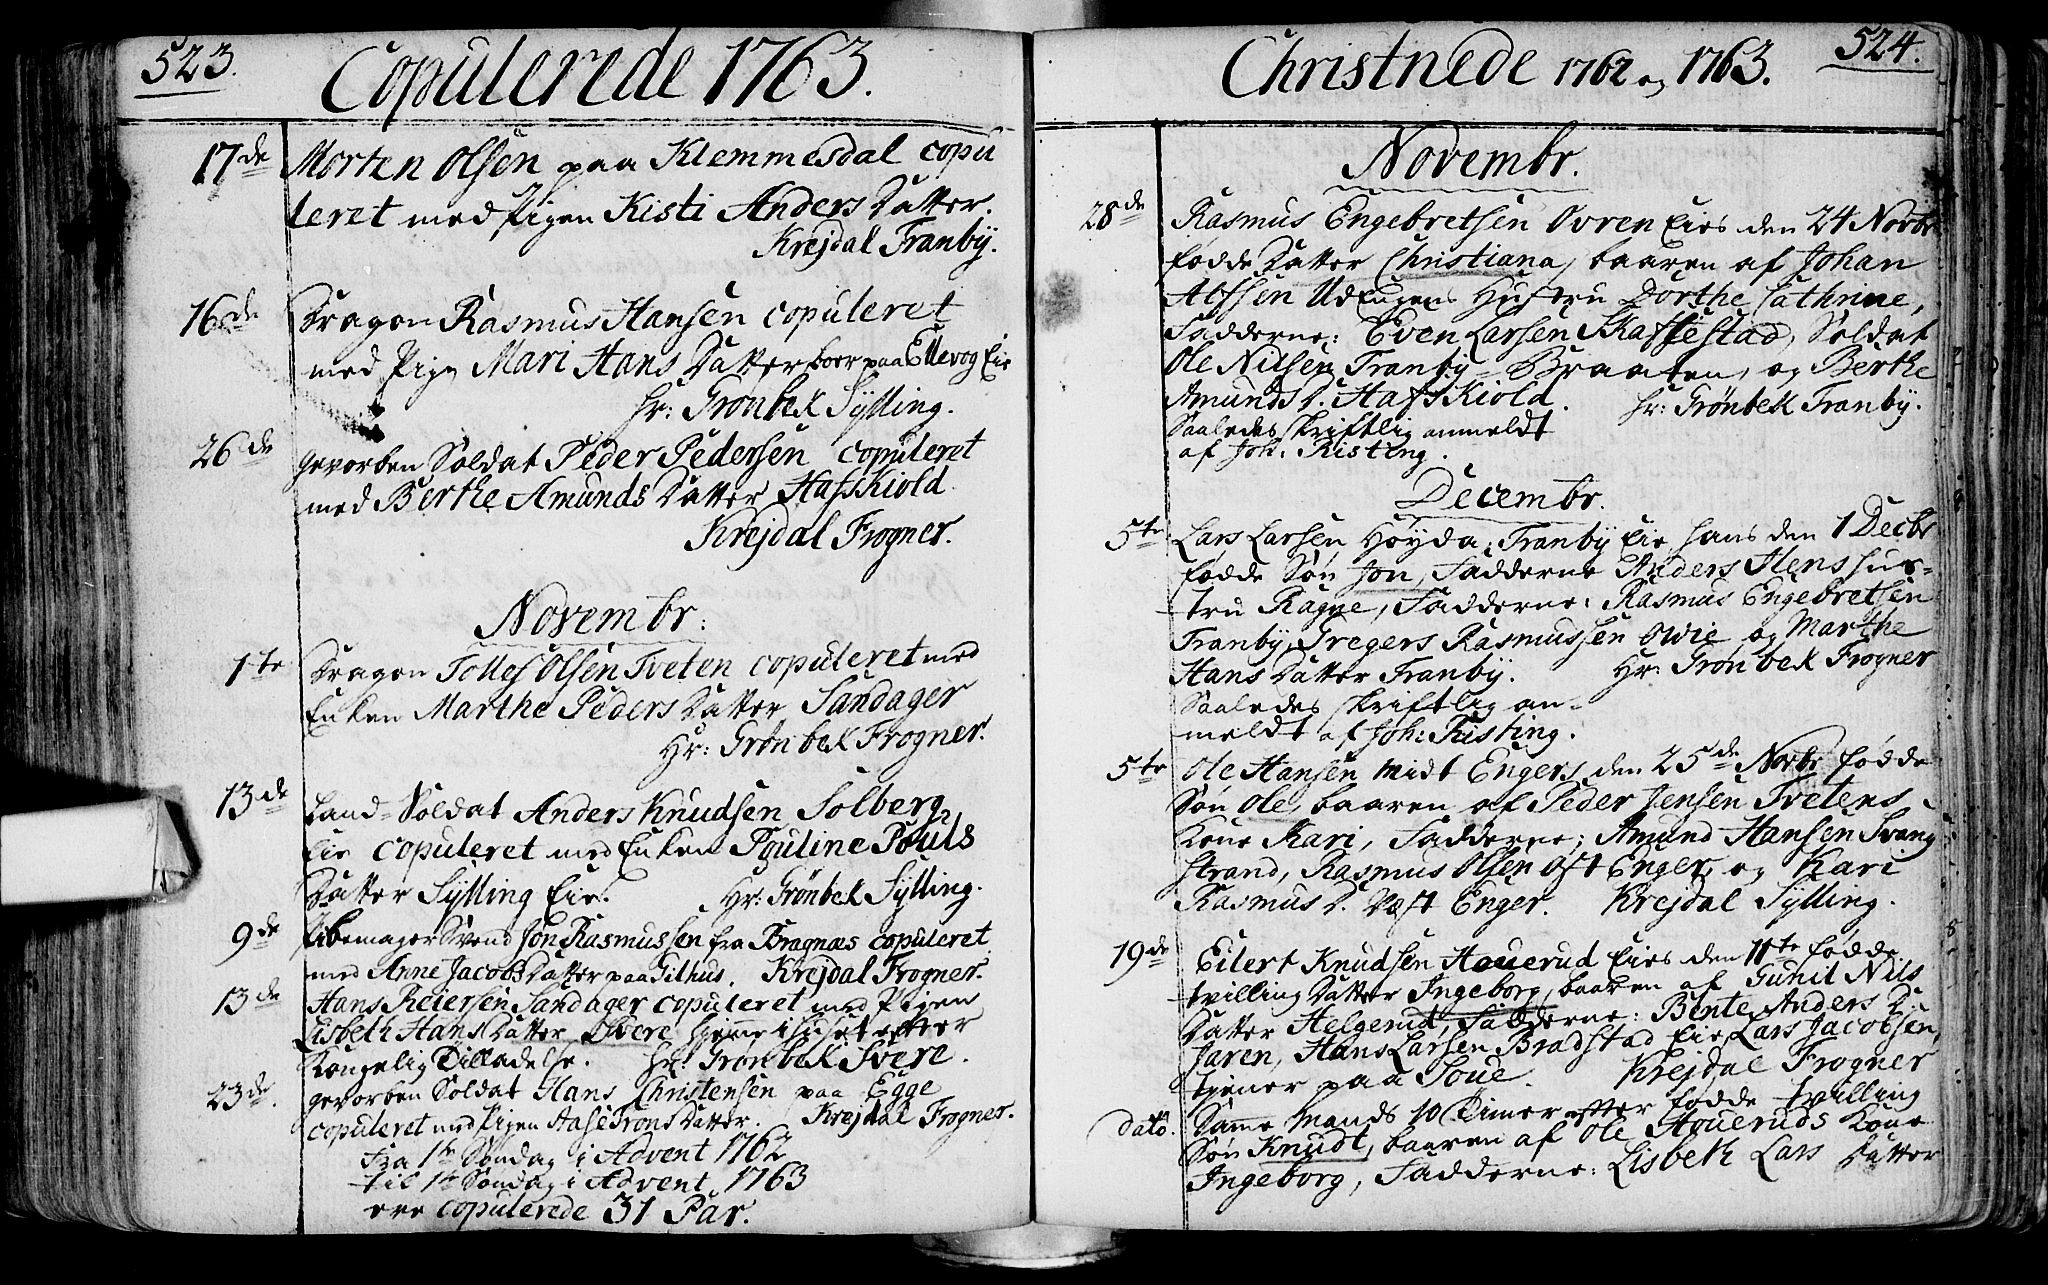 523.
Copulerede 1763.
17de Morten Olsen paa Klemmesdal copu
leret med Pigen Kisti Anders Datter.
Krejdal Franby.
16de Dragon Rasmus Hansen copuleret
med Pige Mari Hans Datter boer paa Ellevog Eie
Hr: Grönbek Sylling.
26de gevorben Soldat Peder Pedersen copuleret
med Berthe Amunds Datter Hafskiold.
Krejdal Frogner.
Novembr:
1te Dragon Tolles Olsen Tveten copuleret med
Enken Marthe Peders Datter Sandager
Hr: Grönbek Frogner.
13de Land-Soldat Anders Knudsen Solberg
Eie copuleret med Enken Pouline Pouls
Datter Sylling Eie. Hr: Grönbek Sylling.
9de Pibemager Svend Jon Rasmussen fra Bragnæs copuleret
med Anne Jacobs Datter paa Gilhus. Krejdal Frogner.
13de Hans Reiersen Sandager copuleret med Pigen
Lisbeth Hans Datter Svere hieme i Huset efter
Kongelig Tilladelse. Hr: Grönbek Svere.
23de. gevorben Soldat Hans Christensen paa Egge
copuleret med Pigen Aase Trons Datter. Krejdal Frogner.
Fra 1te Søndag i Advent 1762
til 1te Søndag i Advent 1763
ere copulerede 31 Par.
524.
Christnede 1762 og 1763.
Novembr.
28de Rasmus Engebretsen Ovren Eies den 24 Novbr
fødde Datter Christiana, baaren af Johan
Alfsen Udengens Hustru Dorthe Cathrine,
Fadderne: Even Larsen Skaffestad, Soldat
Ole Nilsen Franby-Braaten, og Berthe
Amunds D. Hafskiold. Hr: Grönbek Franby.
Saaledes skriftlig anmeldt
af Joh: Risting.
Decembr.
5te Lars Larsen Höyda, Franby Eie hans den 1 Decbr
fødde Søn Jon, Fadderne Anders Hens Hus-
tru Ragne, Fadderne: Rasmus Engebretsen
Franby, Gregers Rasmussen Owie, og Marthe
Hans Datter Franby. Hr: Grönbek Frogner
Saaledes skriftlig an-
meldt af Joh: Risting.
5te Ole Hansen Midt Engers den 25de Novbr fødde
Søn Ole, baaren af Peder Jensen Tvetens
Kone Kari, Fadderne; Amund Hansen Svang
strand, Rasmus Olsen Øst Enger, og Kari
Rasmus D. Vest Enger. Krejdal Sylling.
19de Eilert Knudsen Houerud Eies den 11te fødde
tvilling Datter Ingeborg, baaren af Gunil Nils
Datter Helgerud, Fadderne: Bente Anders D.
Jaren, Hans Larsen Bradstad Eie Lars Jacobsen,
tjener paa Soue. Krejdal Frogner
dato. Samme Mands 10 Timer efter fødde tvilling
Søn Knudt, baaren af Ole Houeruds Kone
Ingeborg, Fadderne: Lisbeth Lars Datter